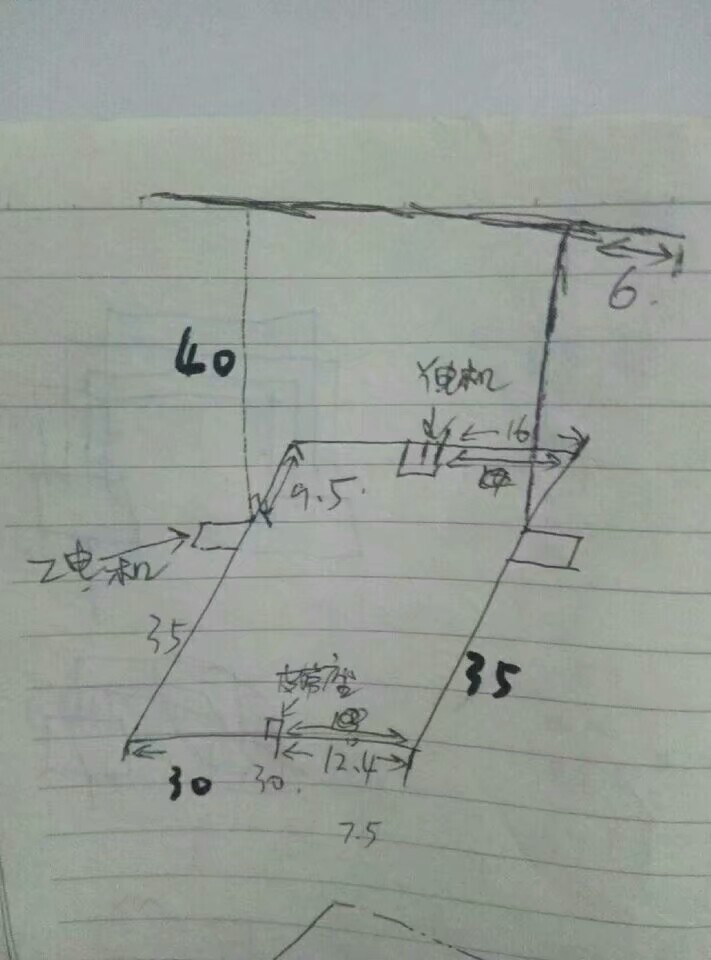 6.
40
Y电机
16
9.5.
Z电机
35
35
皮带座
12.4
30
30.
7.5